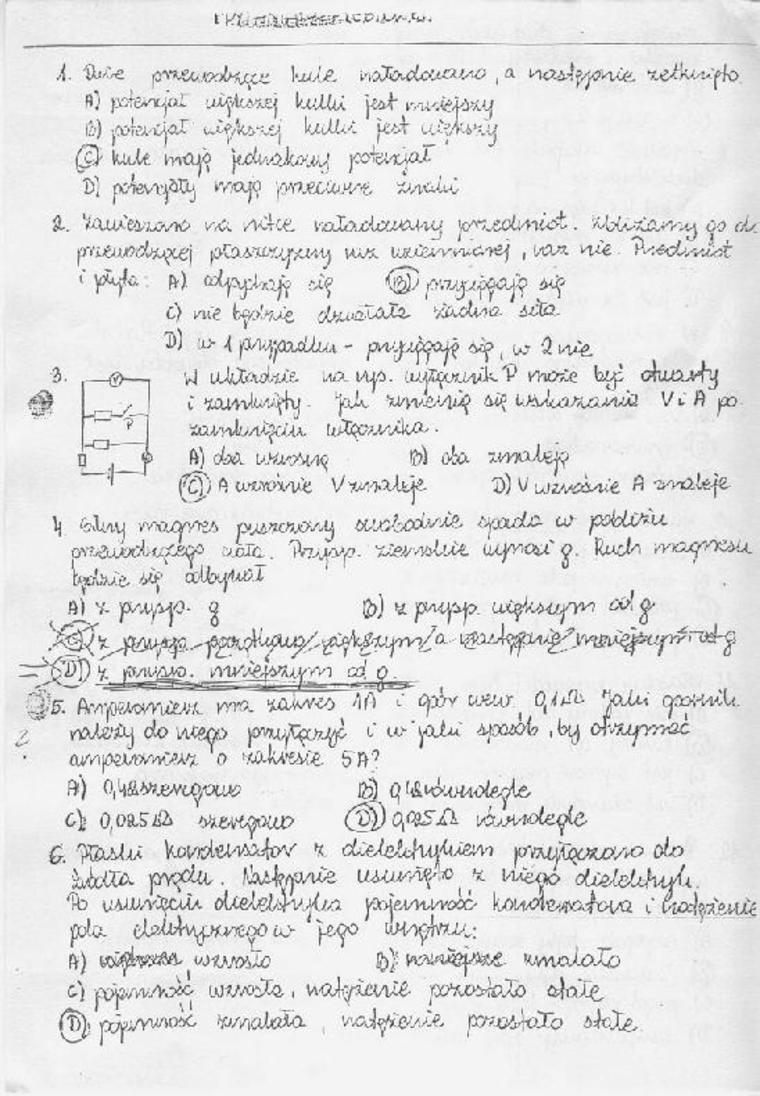 1. Dwie przewodzące kule naładowano, a następnie zetknięto.
A) potencjał większej kulki jest mniejszy
B) potencjał większej kulki jest większy
C) kule mają jednakowy potencjał
D) potencjały mają przeciwne znaki
2. Zawieszono na nitce naładowany przedmiot. Zbliżamy go do
przewodzącej płaszczyzny raz uziemionej, raz nie. Przedmiot
i płyta: A) odpychają się B) przyciągają się
C) nie będzie działała żadna siła
D) w 1 przypadku - przyciągają się, w 2 nie
3. W układzie na rys. wyłącznik P może być otwarty
V
P
i zamknięty. Jak zmienią się wskazania V i A po
zamknięciu włącznika.
A) oba wzrosną B) oba zmaleją
C) A wzrośnie V zmaleje D) V wzrośnie A zmaleje
4. Silny magnes puszczony swobodnie spada w pobliżu
przewodzącego ciała. Przysp. ziemskie wynosi g. Ruch magnesu
będzie się odbywał
A) z przysp. g B) z przysp. większym od g
C) z przysp. początkowo większym a następnie mniejszym od g
D) z przysp. mniejszym od g.
5. Amperomierz ma zakres 1A i opór wew. 0,1Ω Jaki opornik
należy do niego przyłączyć i w jaki sposób, by otrzymać
?
amperomierz o zakresie 5A?
A) 0,4Ω szeregowo B) 0,4Ω równolegle
C) 0,025Ω szeregowo D) 0,025Ω równolegle
6. Płaski kondensator z dielektrykiem przyłączono do
źródła prądu. Następnie usunięto z niego dielektryk.
Po usunięciu dielektryka pojemność kondensatora i natężenie
pola elektrycznego w jego wnętrzu:
A) wzrosło B) zmalało
C) pojemność wzrosła, natężenie pozostało stałe
D) pojemność zmalała, natężenie pozostało stałe.